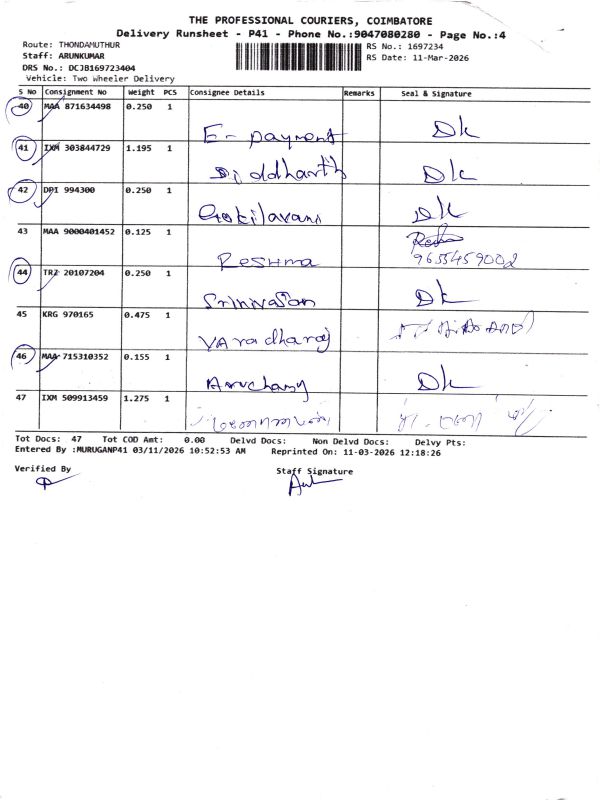 THE PROFESSIONAL COURIERS, COIMBATORE
Delivery Runsheet - P41 - Phone No.:9047080280 - Page No.:4
Route: THONDAMUTHUR
Staff: ARUNKUMAR
DRS No.: DCJB169723404
Vehicle: Two Wheeler Delivery
RS No.: 1697234
RS Date: 11-Mar-2026
S No Consignment No Weight PCS Consignee Details Remarks Seal & Signature
40 MAA 871634498 0.250 1
E-payment Dk
41 IXM 303844729 1.195 1
Siddharth Dk
42 DPI 994300 0.250 1
Gokilavani Dk
43 MAA 9000401452 0.125 1
Reshma
44 TRZ 20107204 0.250 1
Srinivasan Dk
45 KRG 970165 0.475 1
Varadharaj
46 MAA 715310352 0.155 1
Aruchamy Dk
47 IXM 509913459 1.275 1
Tot Docs: 47 Tot COD Amt: 0.00 Delvd Docs: Non Delvd Docs: Delvy Pts:
Entered By :MURUGANP41 03/11/2026 10:52:53 AM Reprinted On: 11-03-2026 12:18:26
Verified By Staff Signature